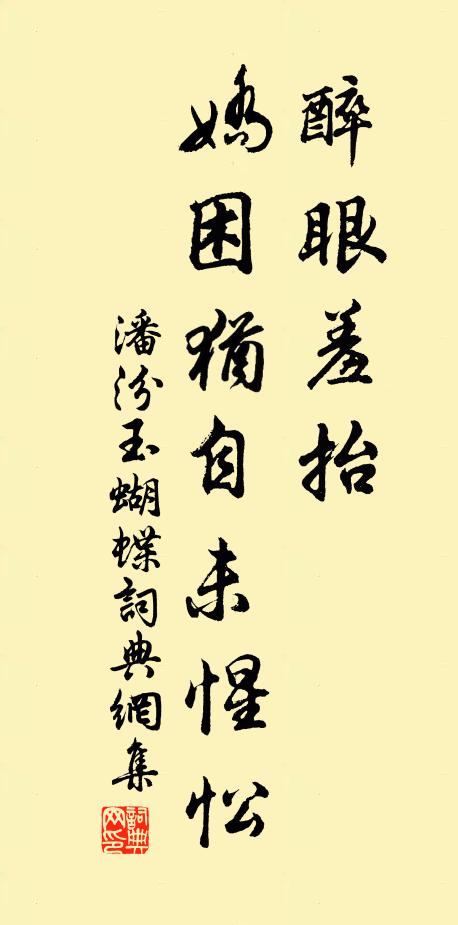 醉眼羞抬
嬌困猶自未惺忪
潘汾玉蝴蝶詞典網集
詞典网印